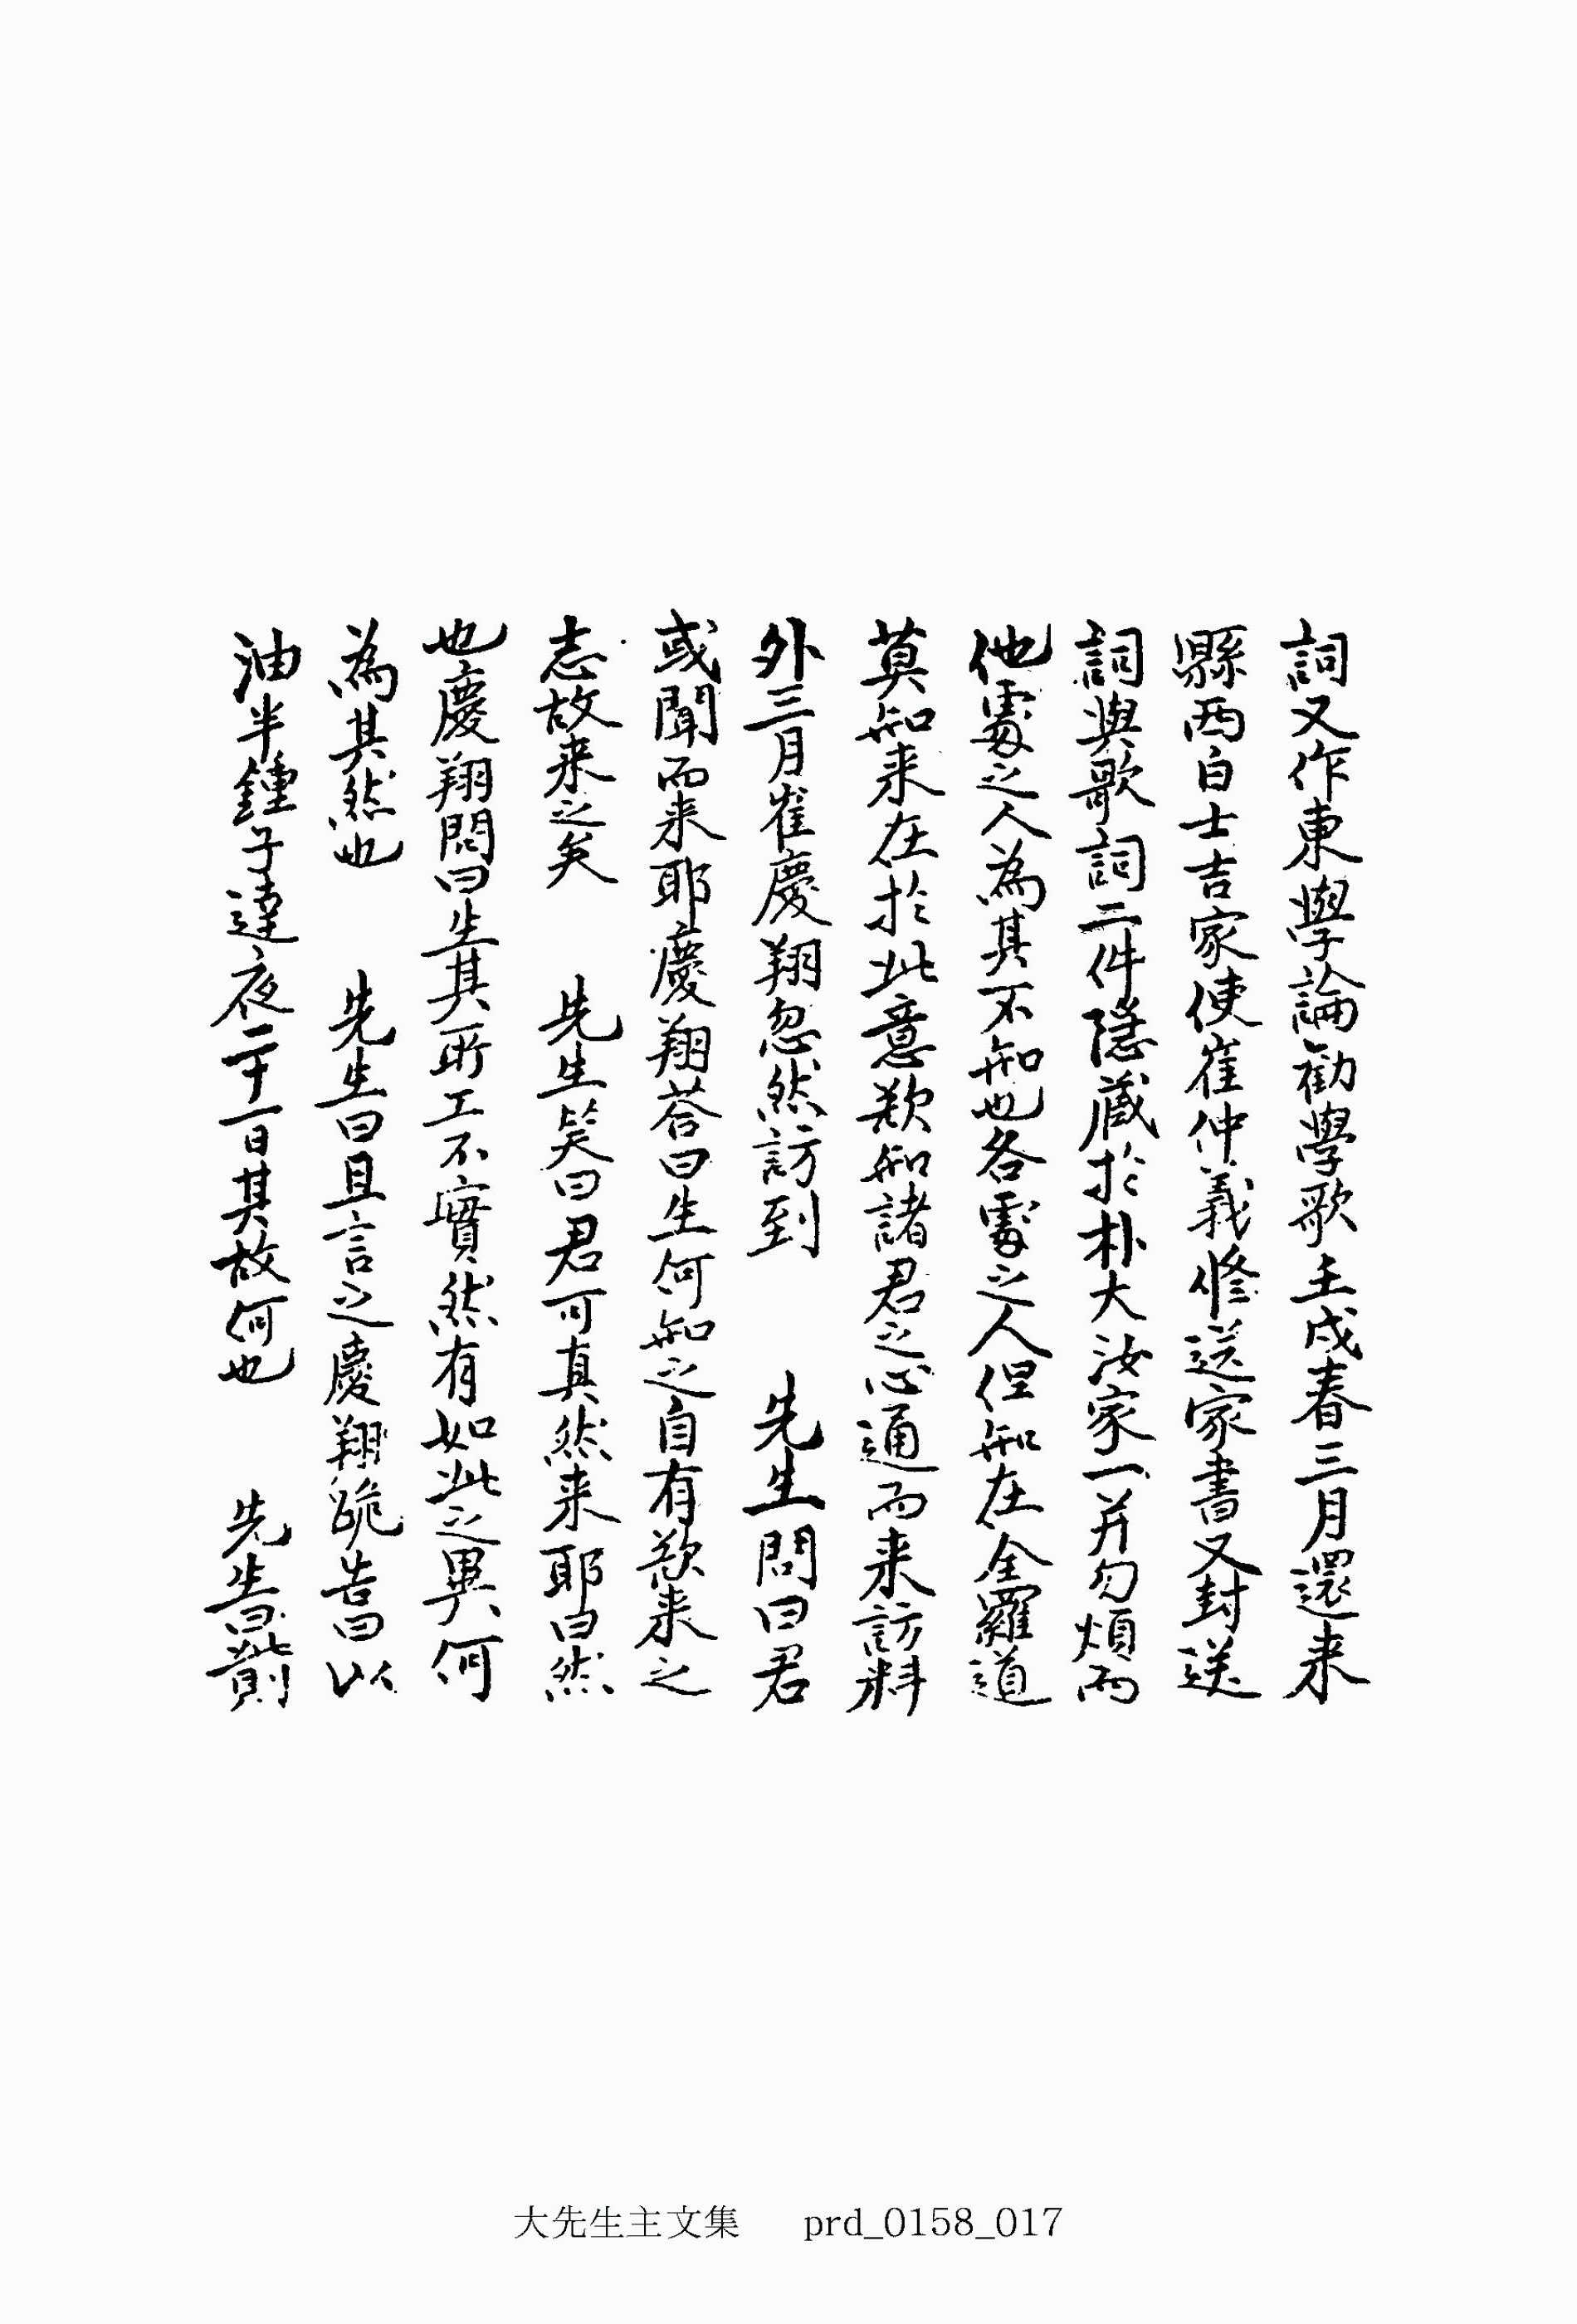 詞又作東學論勸學歌壬戌春三月還来
縣西白士吉家使崔仲義修送家書又封送
詞與歌詞二件隱藏於朴大汝家一并勿煩而
他處之人為其不知也各處之人但知在全羅道
莫知来在於此意欺知諸君之心通而来訪料
外三月崔慶翔忽然訪到　先生問曰君
或聞而来耶慶翔荅曰生何知之自有欲来之
志故来之矣　先生笑曰君可真然来耶曰然
也慶翔問曰生其所工不實然有如此之異何
為其然也　先生曰且言之慶翔跪告曰以
油半鍾子達夜二十一日其故何也　先生曰此則
大先生主文集 prd_0158_017